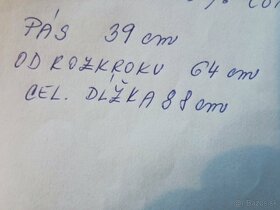 PÁS 39 cm
OD ROZKROKU 64 cm
CEL. DĹŽKA 88 cm
bazos.sk